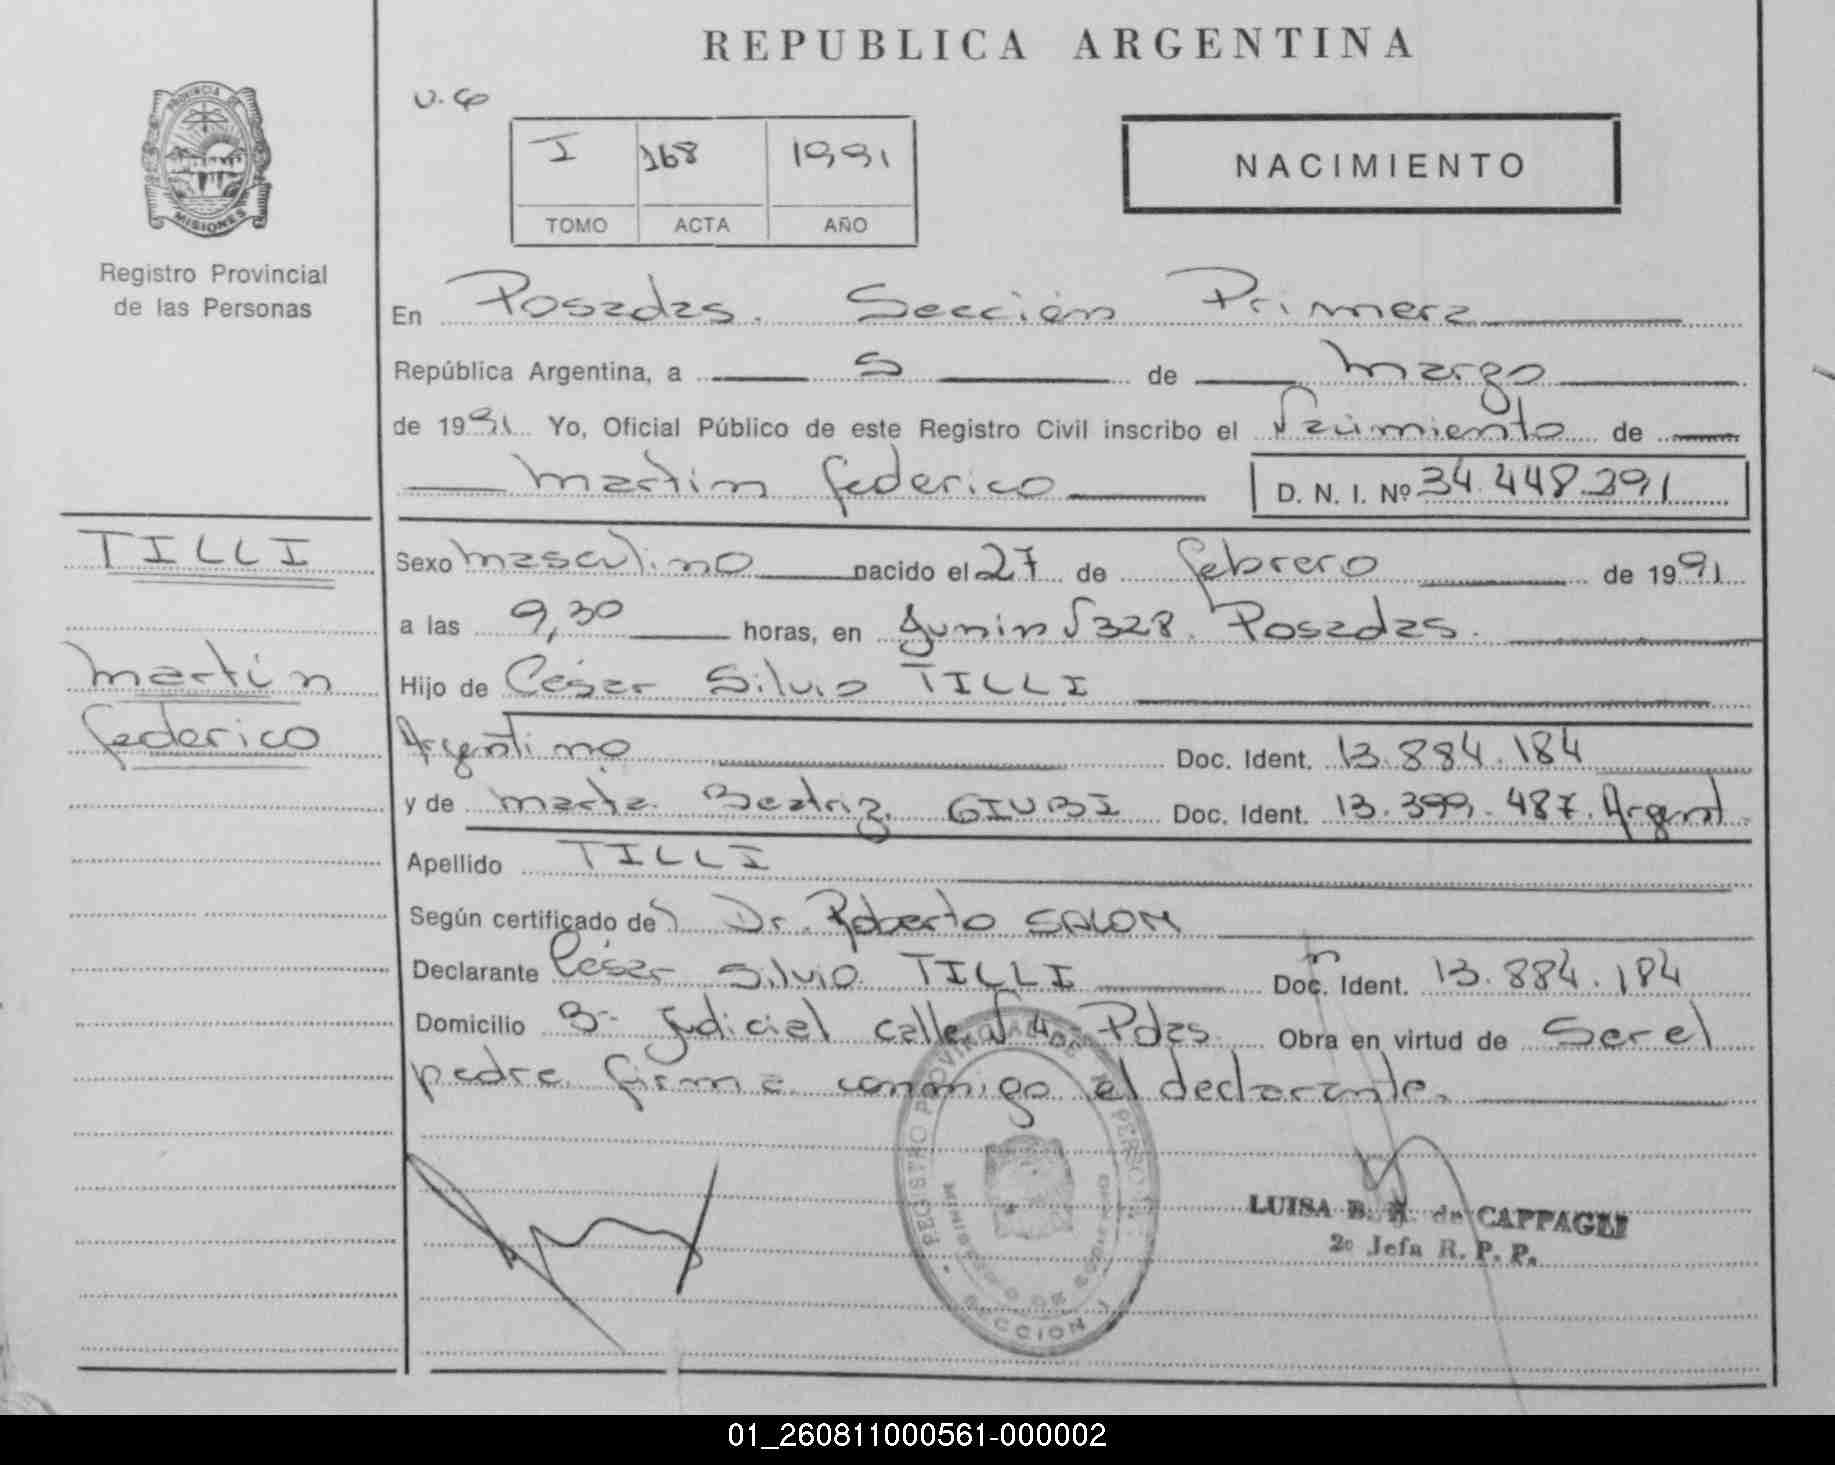 REPUBLICA ARGENTINA
PROVINCIA DE
MISIONES
Registro Provincial
de las Personas
I 168 1991
TOMO ACTA AÑO
NACIMIENTO
En Posadas. Sección Primera
República Argentina, a 5 de marzo
de 1991 Yo, Oficial Público de este Registro Civil inscribo el Nacimiento de
martin federico D. N. I. Nº 34.448.391
TILLI
martín
federico
Sexo masculino nacido el 27 de febrero de 1991
a las 9,30 horas, en Junin 328. Posadas.
Hijo de César Silvio TILLI
Argentino Doc. Ident. 13.884.184
y de marta Beatriz GIUBI Doc. Ident. 13.399.487. Argent.
Apellido TILLI
Según certificado del Dr. Roberto SALOM
Declarante César Silvio TILLI Doc. Ident. 13.884.184
Domicilio Bº Judicial calle 4 Pdas. Obra en virtud de Ser el
padre. firma conmigo el declarante.
REGISTRO PROVINCIAL DE PERSONAS
MINISTERIO DE GOBIERNO
SECCION 1
LUISA B. de CAPPAGLI
2º Jefa R. P. P.
01_260811000561-000002